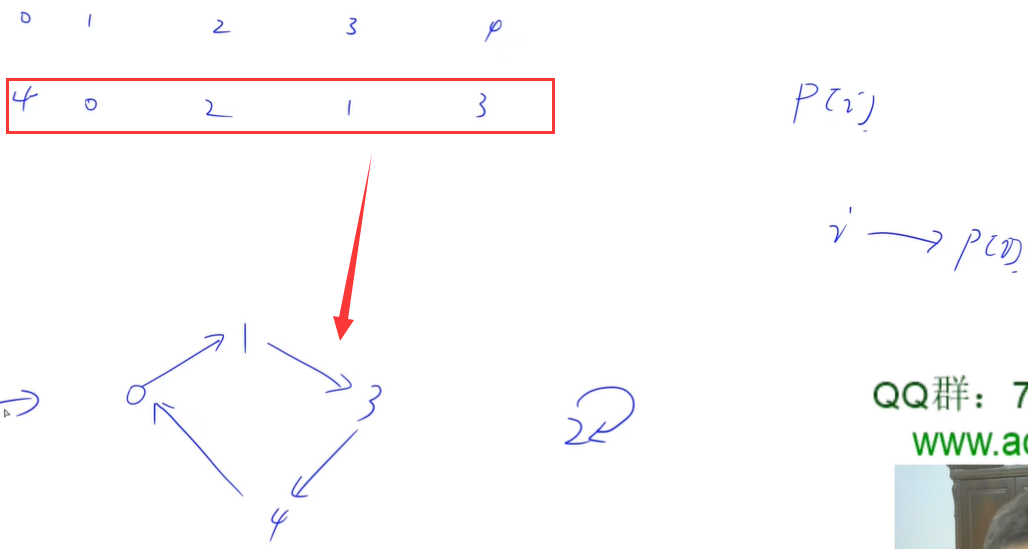 0 1 2 3 4
4 0 2 1 3
P(i)
i → P(i)
1
0 3
2
4
QQ群：7
www.ac